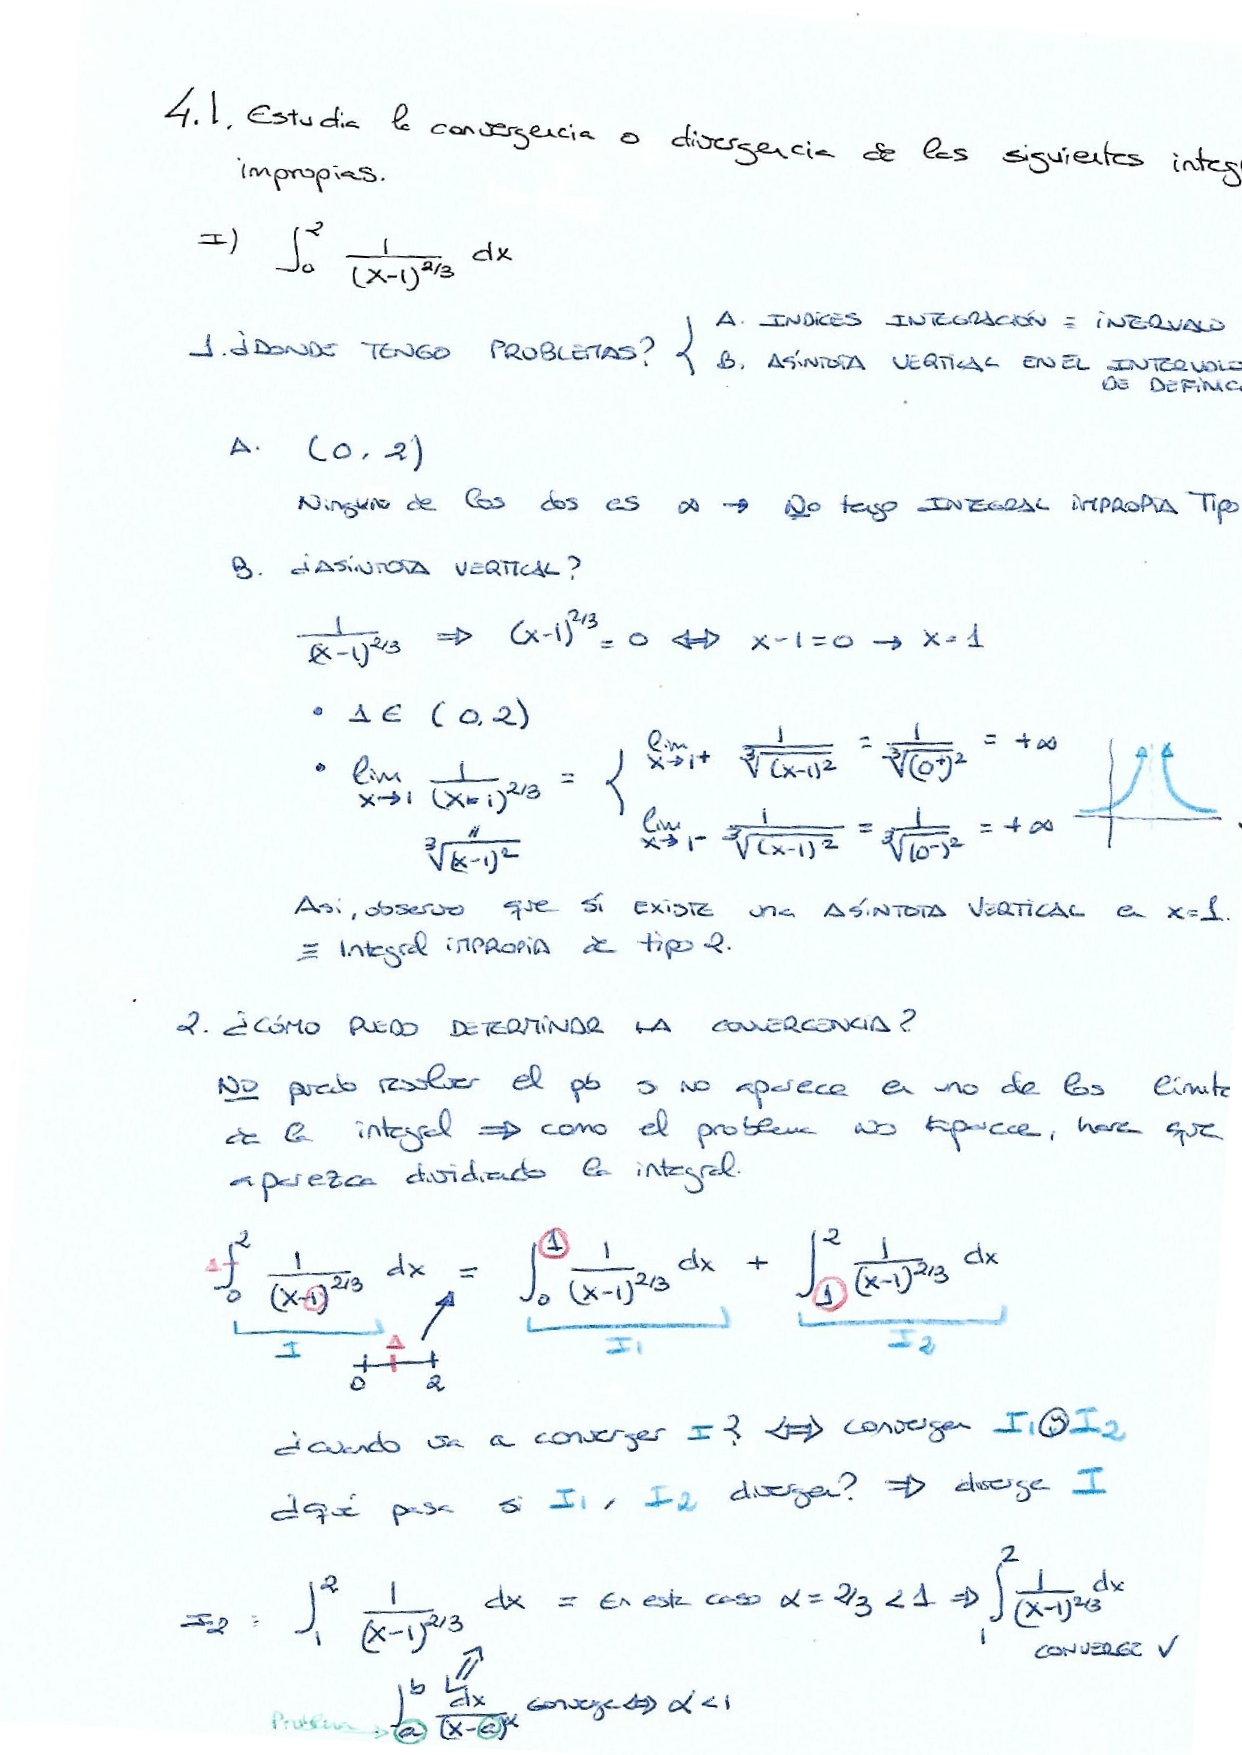 4.1. Estudia la convergencia o divergencia de las siguientes integ
impropias.
I) ∫₀² 1/(x-1)^(2/3) dx
1. ¿DONDE TENGO PROBLEMAS? { A. INDICES INTEGRACIÓN ≡ INTERVALO
B. ASÍNTOTA VERTICAL EN EL INTERVALO
DE DEFINIC
A. (0, 2)
Ninguno de los dos es ∞ → No tengo INTEGRAL IMPROPIA Tipo
B. ¿ASÍNTOTA VERTICAL?
1/(x-1)^(2/3) ⇒ (x-1)^(2/3) = 0 ⇔ x-1=0 → x=1
• 1 ∈ (0,2)
• lim x→1 1/(x-1)^(2/3) = { lim x→1+ 1/∛(x-1)² = 1/∛(0+)² = +∞
lim x→1- 1/∛(x-1)² = 1/∛(0-)² = +∞
" ∛(x-1)²
Asi, observo que sí EXISTE una ASÍNTOTA VERTICAL en x=1.
≡ Integral IMPROPIA de tipo 2.
2. ¿CÓMO PUEDO DETERMINAR LA CONVERGENCIA?
NO puedo resolver el pb si no aparece en uno de los límite
de la integral ⇒ como el problema no aparece, haré que
aparezca dividiendo la integral.
1 ∫₀² 1/(x-1)^(2/3) dx = ∫₀¹ 1/(x-1)^(2/3) dx + ∫₁² 1/(x-1)^(2/3) dx
I I₁ I₂
1
0 2
¿cuándo va a converger I? ⇔ convergen I₁ y I₂
¿qué pasa si I₁, I₂ divergen? ⇒ diverge I
I₂ = ∫₁² 1/(x-1)^(2/3) dx = En este caso α = 2/3 < 1 ⇒ ∫₁² 1/(x-1)^(2/3) dx
CONVERGE ✓
Problema → ∫ₐᵇ dx/(x-a)^α converge ⇔ α < 1